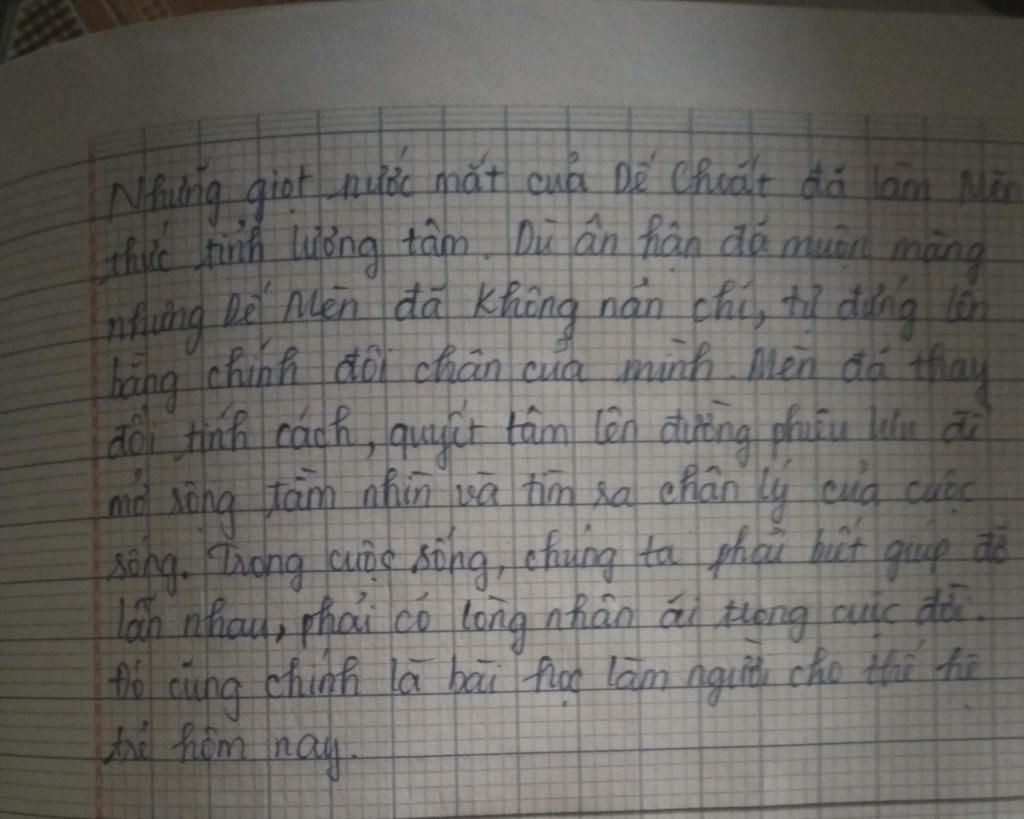 Những giọt nước mắt của Dế Choắt đã làm Mèn
thức tỉnh lương tâm. Dù ân hận đã muộn màng
nhưng Dế Mèn đã không nản chí, tự đứng lên
bằng chính đôi chân của mình. Mèn đã thay
đổi tính cách, quyết tâm lên đường phiêu lưu để
mở rộng tầm nhìn và tìm ra chân lý của cuộc
sống. Trong cuộc sống, chúng ta phải biết giúp đỡ
lẫn nhau, phải có lòng nhân ái trong cuộc đời.
Đó cũng chính là bài học làm người cho thế hệ
trẻ hôm nay.